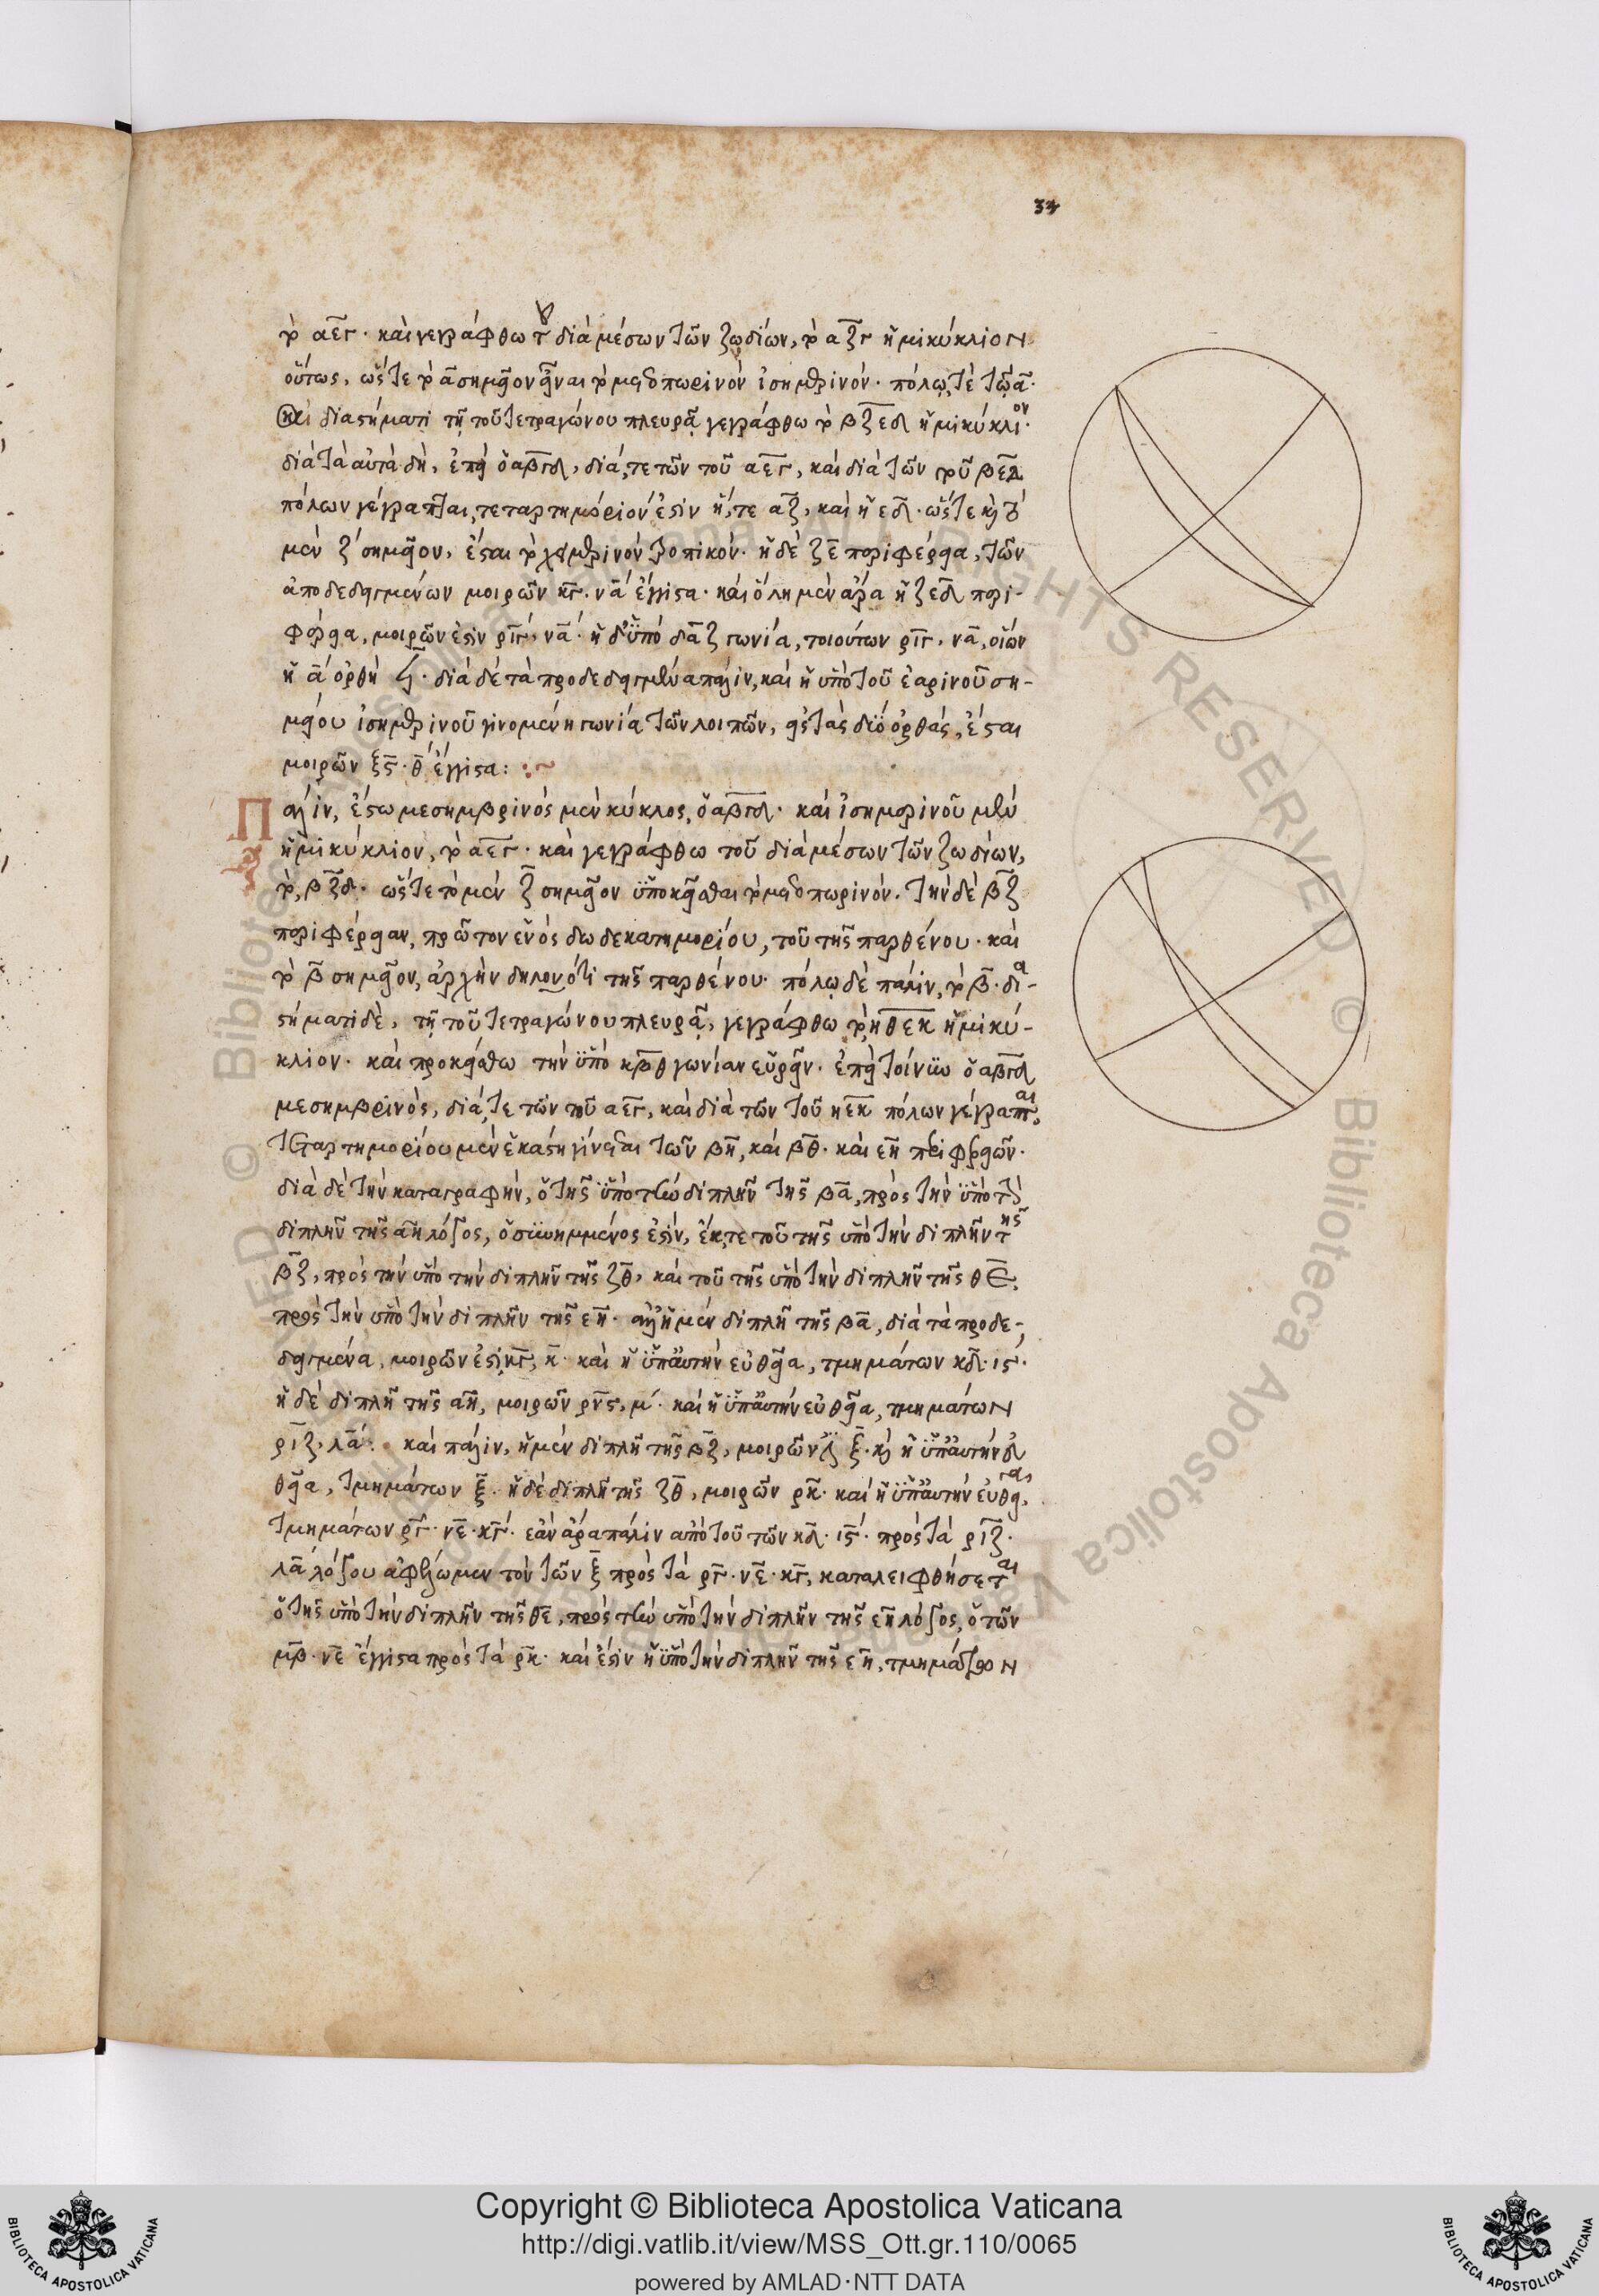 34
τὸ αεγ· καὶ γεγράφθω τοῦ διὰ μέσων τῶν ζῳδίων, τὸ αζγ ἡμικύκλιον
οὕτως, ὥστε τὸ α σημεῖον εἶναι τὸ μετοπωρινὸν ἰσημερινόν· πόλῳ τε τῷ α·
καὶ διαστήματι τῇ τοῦ τετραγώνου πλευρᾷ γεγράφθω τὸ βζεδ ἡμικύκλιον·
διὰ τὰ αὐτὰ δὴ, ἐπεὶ ὁ αβγδ, διά τε τῶν τοῦ αεγ, καὶ διὰ τῶν τοῦ βεδ
πόλων γέγραπται, τεταρτημόριόν ἐστιν ἥ τε αζ, καὶ ἡ εδ· ὥστε καὶ τὸ
μὲν ζ σημεῖον, ἔσται τὸ χειμερινὸν τροπικόν· ἡ δὲ ζε περιφέρεια, τῶν
ἀποδεδειγμένων μοιρῶν κγ· να ἔγγιστα· καὶ ὅλη μὲν ἄρα ἡ ζεδ περι-
φέρεια, μοιρῶν ἐστιν ριγ, να· ἡ δ' ὑπὸ δαζ γωνία, τοιούτων ριγ, να, οἵων
ἡ α ὀρθὴ ϟ· διὰ δὲ τὰ προδεδειγμένα πάλιν, καὶ ἡ ὑπὸ τοῦ ἐαρινοῦ ση-
μείου ἰσημερινοῦ γινομένη γωνία τῶν λοιπῶν, εἰς τὰς δύο ὀρθάς, ἔσται
μοιρῶν ξϛ· θ ἔγγιστα: :~
Πάλιν, ἔστω μεσημβρινὸς μὲν κύκλος, ὁ αβγδ· καὶ ἰσημερινοῦ μὲν
ἡμικύκλιον, τὸ αεγ· καὶ γεγράφθω τοῦ διὰ μέσων τῶν ζωδίων,
τὸ, βζδ· ὥστε τὸ μὲν ζ σημεῖον ὑποκεῖσθαι τὸ μετοπωρινόν. τὴν δὲ βζ
περιφέρειαν, πρῶτον ἑνὸς δωδεκατημορίου, τοῦ τῆς παρθένου· καὶ
τὸ β σημεῖον, ἀρχὴν δηλονότι τῆς παρθένου· πόλῳ δὲ πάλιν, τῷ β· δια-
στήματι δὲ, τῇ τοῦ τετραγώνου πλευρᾷ, γεγράφθω τὸ ηθεκ ἡμικύ-
κλιον· καὶ προκείσθω τὴν ὑπὸ κβθ γωνίαν εὑρεῖν· ἐπεὶ τοίνυν ὁ αβγδ
μεσημβρινὸς, διά τε τῶν τοῦ αεγ, καὶ διὰ τῶν τοῦ ηεκ πόλων γέγραπται,
τεταρτημορίου μὲν ἑκάστη γίνεται τῶν βη, καὶ βθ· καὶ εη περιφερειῶν·
διὰ δὲ τὴν καταγραφὴν, ὁ τῆς ὑπὸ τὴν διπλῆν τῆς βα, πρὸς τὴν ὑπὸ τὴν
διπλῆν τῆς αη λόγος, ὁ συνημμένος ἐστίν, ἔκ τε τοῦ τῆς ὑπὸ τὴν διπλῆν τῆς
βζ, πρὸς τὴν ὑπὸ τὴν διπλῆν τῆς ζθ, καὶ τοῦ τῆς ὑπὸ τὴν διπλῆν τῆς θε,
πρὸς τὴν ὑπὸ τὴν διπλῆν τῆς εη· ἀλλ' ἡ μὲν διπλῆ τῆς βα, διὰ τὰ προδε-
δειγμένα, μοιρῶν ἐστι κγ, κ· καὶ ἡ ὑπ' αὐτὴν εὐθεῖα, τμημάτων κδ· ιϛ·
ἡ δὲ διπλῆ τῆς αη, μοιρῶν ρνϛ, μ· καὶ ἡ ὑπ' αὐτὴν εὐθεῖα, τμημάτων
ριζ, λα· καὶ πάλιν, ἡ μὲν διπλῆ τῆς βζ, μοιρῶν ξ· καὶ ἡ ὑπ' αὐτὴν εὐ
θεῖα, τμημάτων ξ· ἡ δὲ διπλῆ τῆς ζθ, μοιρῶν ρκ· καὶ ἡ ὑπ' αὐτὴν εὐθεῖα,
τμημάτων ργ· νε· κγ· ἐὰν ἄρα πάλιν ἀπὸ τοῦ τῶν κδ· ιϛ· πρὸς τὰ ριζ·
λα λόγου ἀφέλωμεν τὸν τῶν ξ πρὸς τὰ ργ· νε· κγ, καταλειφθήσεται
ὁ τῆς ὑπὸ τὴν διπλῆν τῆς θε, πρὸς τὴν ὑπὸ τὴν διπλῆν τῆς εη λόγος, ὁ τῶν
μβ· νε ἔγγιστα πρὸς τὰ ρκ· καὶ ἔστιν ἡ ὑπὸ τὴν διπλῆν τῆς εη, τμημάτων
Copyright © Biblioteca Apostolica Vaticana
http://digi.vatlib.it/view/MSS_Ott.gr.110/0065
powered by AMLAD·NTT DATA
BIBLIOTECA APOSTOLICA VATICANA
BIBLIOTECA APOSTOLICA VATICANA